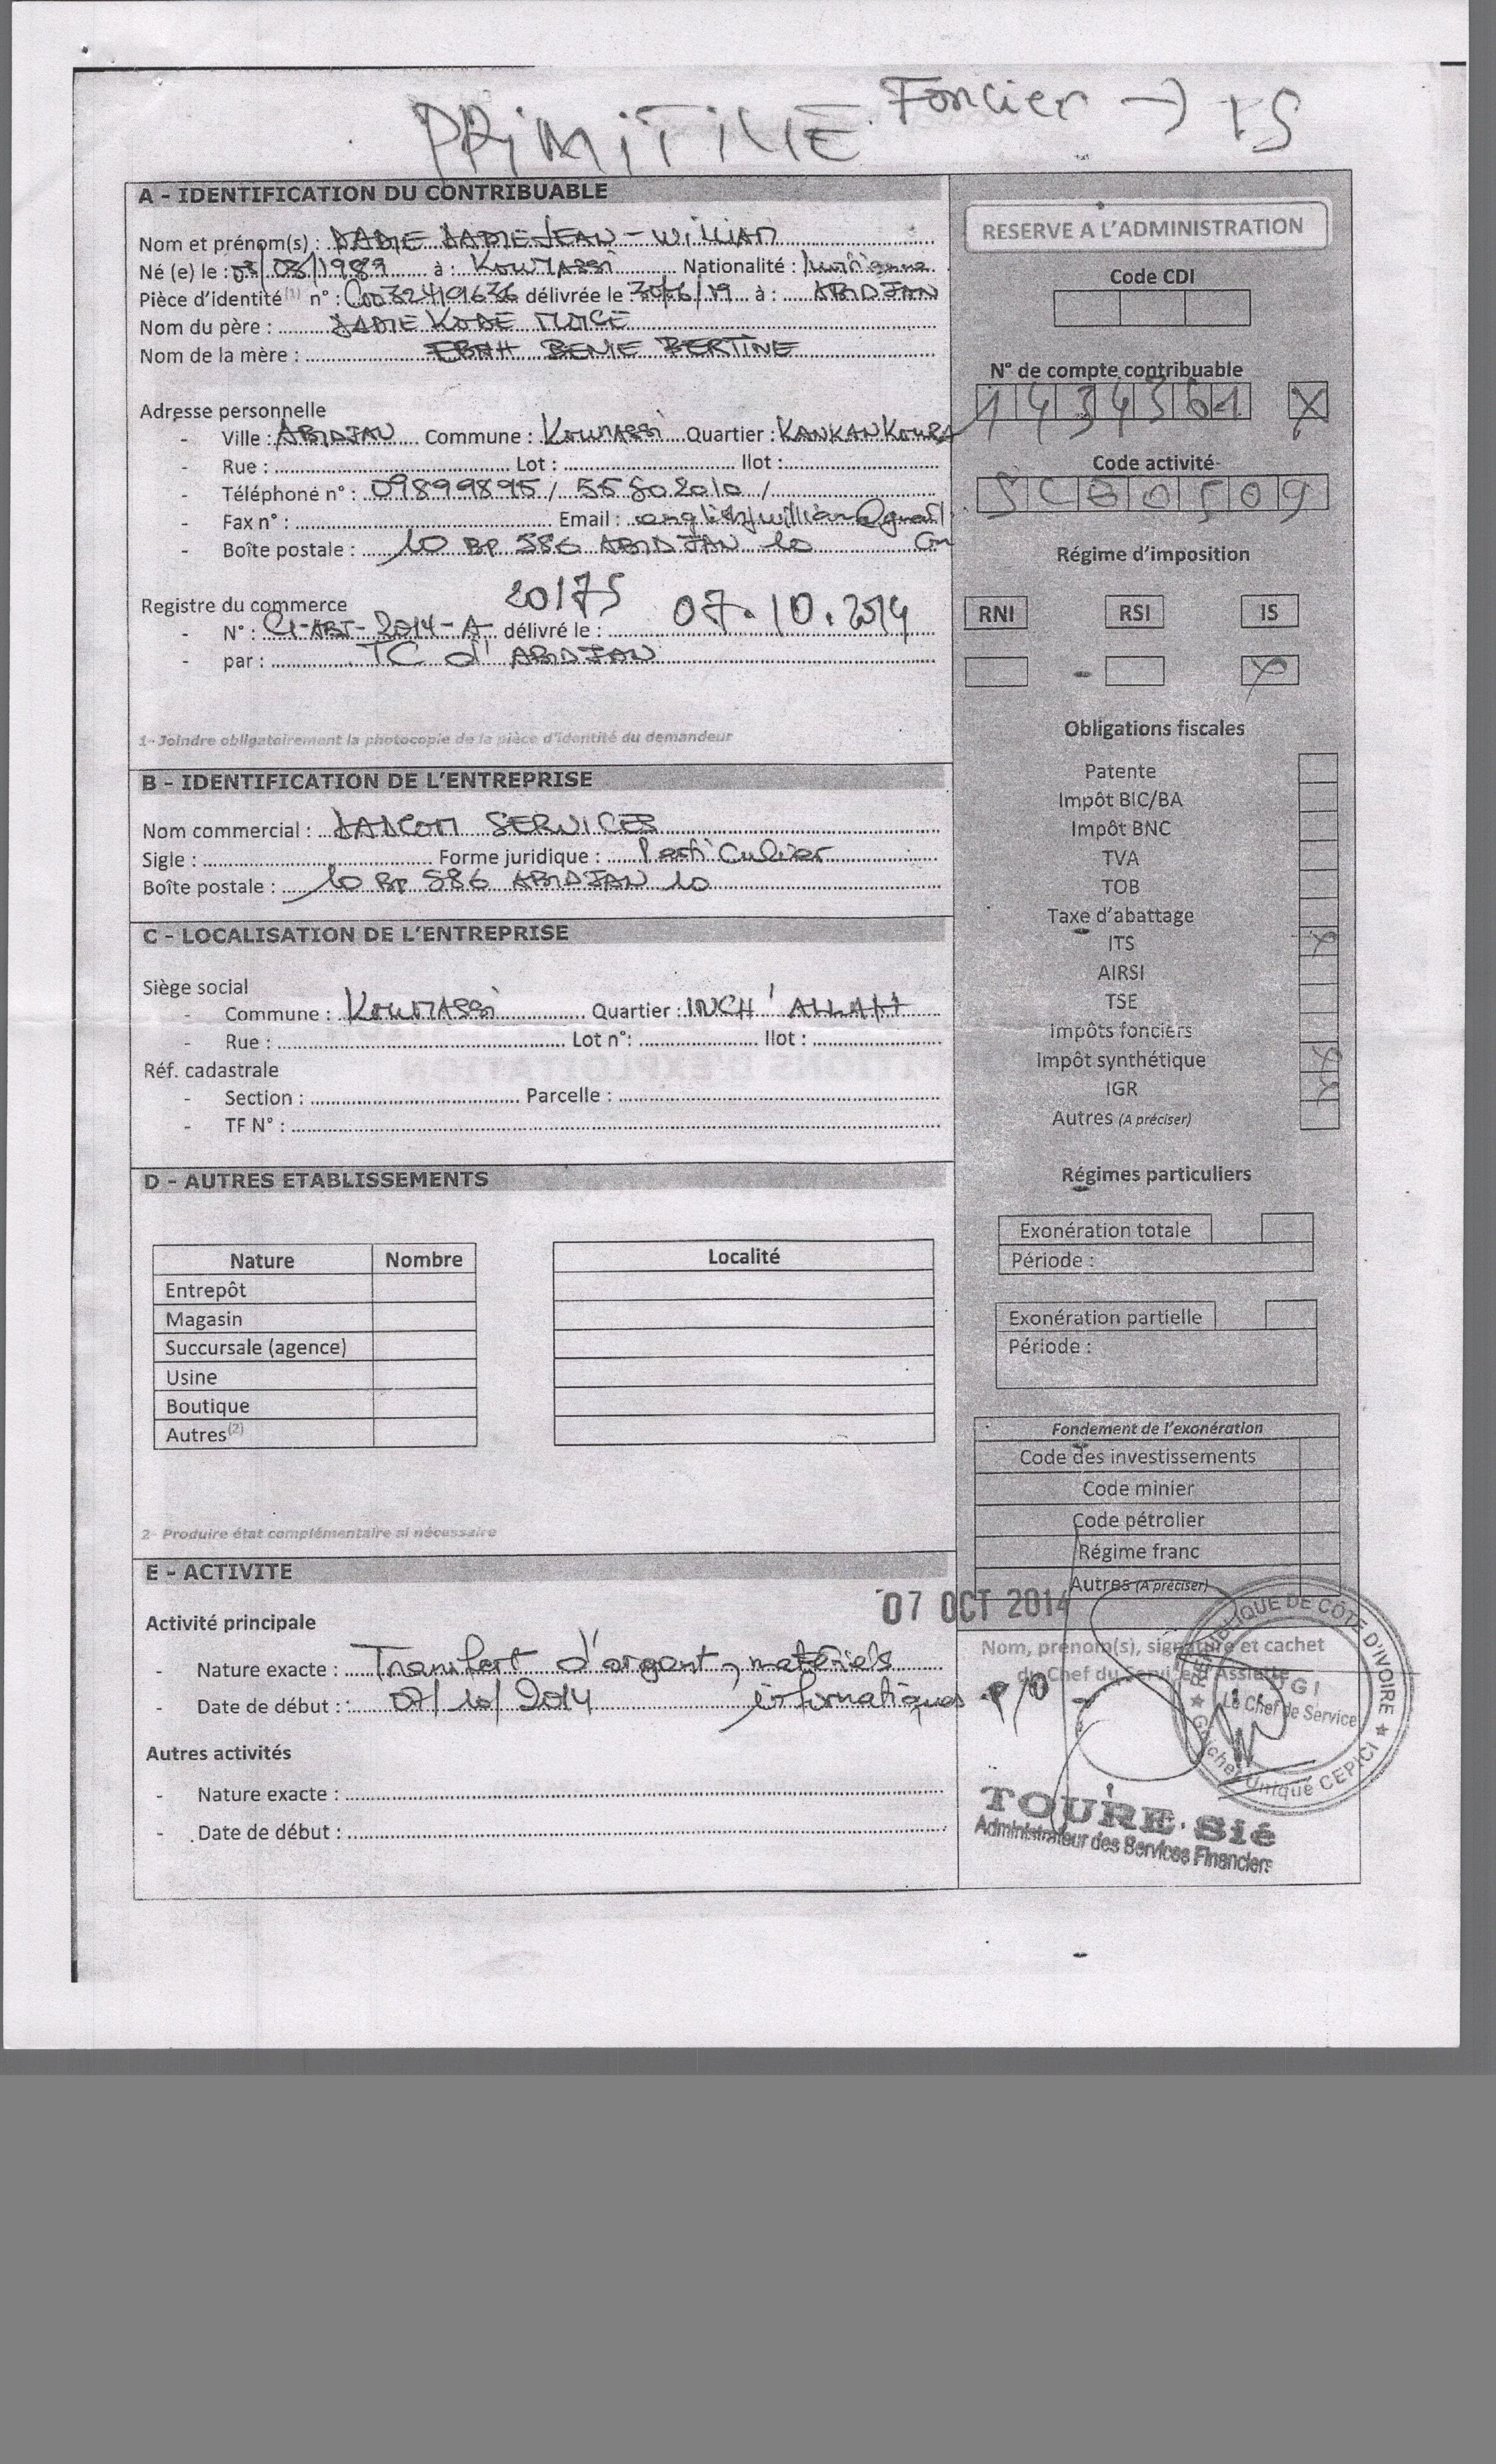 PRIMITIVE Foncier → IS
A - IDENTIFICATION DU CONTRIBUABLE
Nom et prénom(s) : DADIE DADIE JEAN - WILLIAM
Né (e) le : 03/03/1989 à : KOUMASSI Nationalité : Ivoirienne
Pièce d'identité (1) n° : C0032419636 délivrée le 30/6/19 à : ABIDJAN
Nom du père : DADIE KODE
Nom de la mère : EBAH BENIE BERTINE
Adresse personnelle
- Ville : ABIDJAN Commune : KOUMASSI Quartier : KANKANKOURA
- Rue : Lot : Ilot :
- Téléphone n° : 09899895 / 55802010 /
- Fax n° : Email :
- Boîte postale : 10 BP 586 ABIDJAN 10
Registre du commerce
- N° : CI-ABJ-2014-A 20175 délivré le : 07.10.2014
- par : TC d'ABIDJAN
1- Joindre obligatoirement la photocopie de la pièce d'identité du demandeur
B - IDENTIFICATION DE L'ENTREPRISE
Nom commercial : DADCOM SERVICES
Sigle : Forme juridique : Particulier
Boîte postale : 10 BP 586 ABIDJAN 10
C - LOCALISATION DE L'ENTREPRISE
Siège social
- Commune : KOUMASSI Quartier : INCH'ALLAH
- Rue : Lot n°: Ilot :
Réf. cadastrale
- Section : Parcelle :
- TF N° :
D - AUTRES ETABLISSEMENTS
Nature Nombre Localité
Entrepôt
Magasin
Succursale (agence)
Usine
Boutique
Autres (2)
2- Produire état complémentaire si nécessaire
E - ACTIVITE
Activité principale
- Nature exacte : Transfert d'argent, matériels
informatiques
- Date de début : 07/10/2014
Autres activités
- Nature exacte :
- Date de début :
RESERVE A L'ADMINISTRATION
Code CDI
N° de compte contribuable
1434361 X
Code activité
SC800509
Régime d'imposition
RNI RSI IS
X
Obligations fiscales
Patente
Impôt BIC/BA
Impôt BNC
TVA
TOB
Taxe d'abattage
ITS X
AIRSI
TSE
Impôts fonciers
Impôt synthétique X
IGR X
Autres (A préciser)
Régimes particuliers
Exonération totale
Période :
Exonération partielle
Période :
Fondement de l'exonération
Code des investissements
Code minier
Code pétrolier
Régime franc
Autres (A préciser)
07 OCT 2014
Nom, prénom(s), signature et cachet
du Chef du Service d'Assiette
P/O
REPUBLIQUE DE CÔTE D'IVOIRE
DGI
Le Chef de Service
Guichet Unique CEPICI
TOURE Sié
Administrateur des Services Financiers